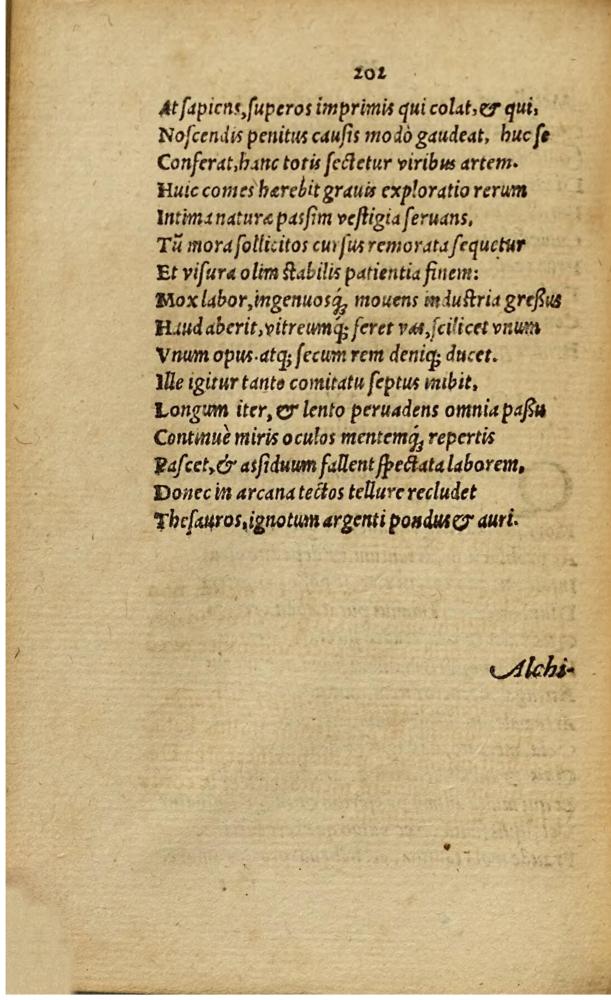 202
At ſapiens, ſuperos imprimis qui colat, & qui,
Noſcendis penitus cauſis modò gaudeat, huc ſe
Conferat, hanc totis ſectetur viribus artem.
Huic comes hærebit grauis exploratio rerum
Intima naturæ paſſim veſtigia ſeruans,
Tũ mora ſollicitos curſus remorata ſequetur
Et viſura olim ſtabilis patientia finem:
Mox labor, ingenuosq́; mouens induſtria greſſus
Haud aberit, vitreumq́; feret vas, ſcilicet vnum
Vnum opus. atq; ſecum rem deniq; ducet.
Ille igitur tanto comitatu ſeptus inibit,
Longum iter, & lento peruadens omnia paſſu
Continuè miris oculos mentemq́; repertis
Paſcet, & aſſiduum fallent ſpectata laborem,
Donec in arcana tectos tellure recludet
Theſauros, ignotum argenti pondus & auri.
Alchi-